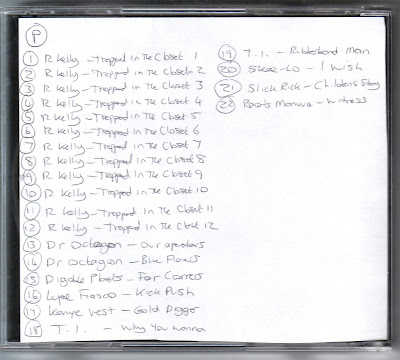 P
1 R Kelly - Trapped In The Closet 1
2 R Kelly - Trapped In The Closet 2
3 R Kelly - Trapped In The Closet 3
4 R Kelly - Trapped In The Closet 4
5 R Kelly - Trapped In The Closet 5
6 R Kelly - Trapped In The Closet 6
7 R Kelly - Trapped In The Closet 7
8 R Kelly - Trapped In The Closet 8
9 R Kelly - Trapped In The Closet 9
10 R Kelly - Trapped In The Closet 10
11 R Kelly - Trapped In The Closet 11
12 R Kelly - Trapped In The Closet 12
13 Dr Octagon - Our operators
14 Dr Octagon - Blue Flowers
15 Digable Planets - For Corners
16 Lupe Fiasco - Kick Push
17 Kanye West - Gold Digger
18 T.I. - Why You Wanna
19 T.I. - Rubberband Man
20 Skee-Lo - I Wish
21 Slick Rick - Childrens Story
22 Roots Manuva - Witness